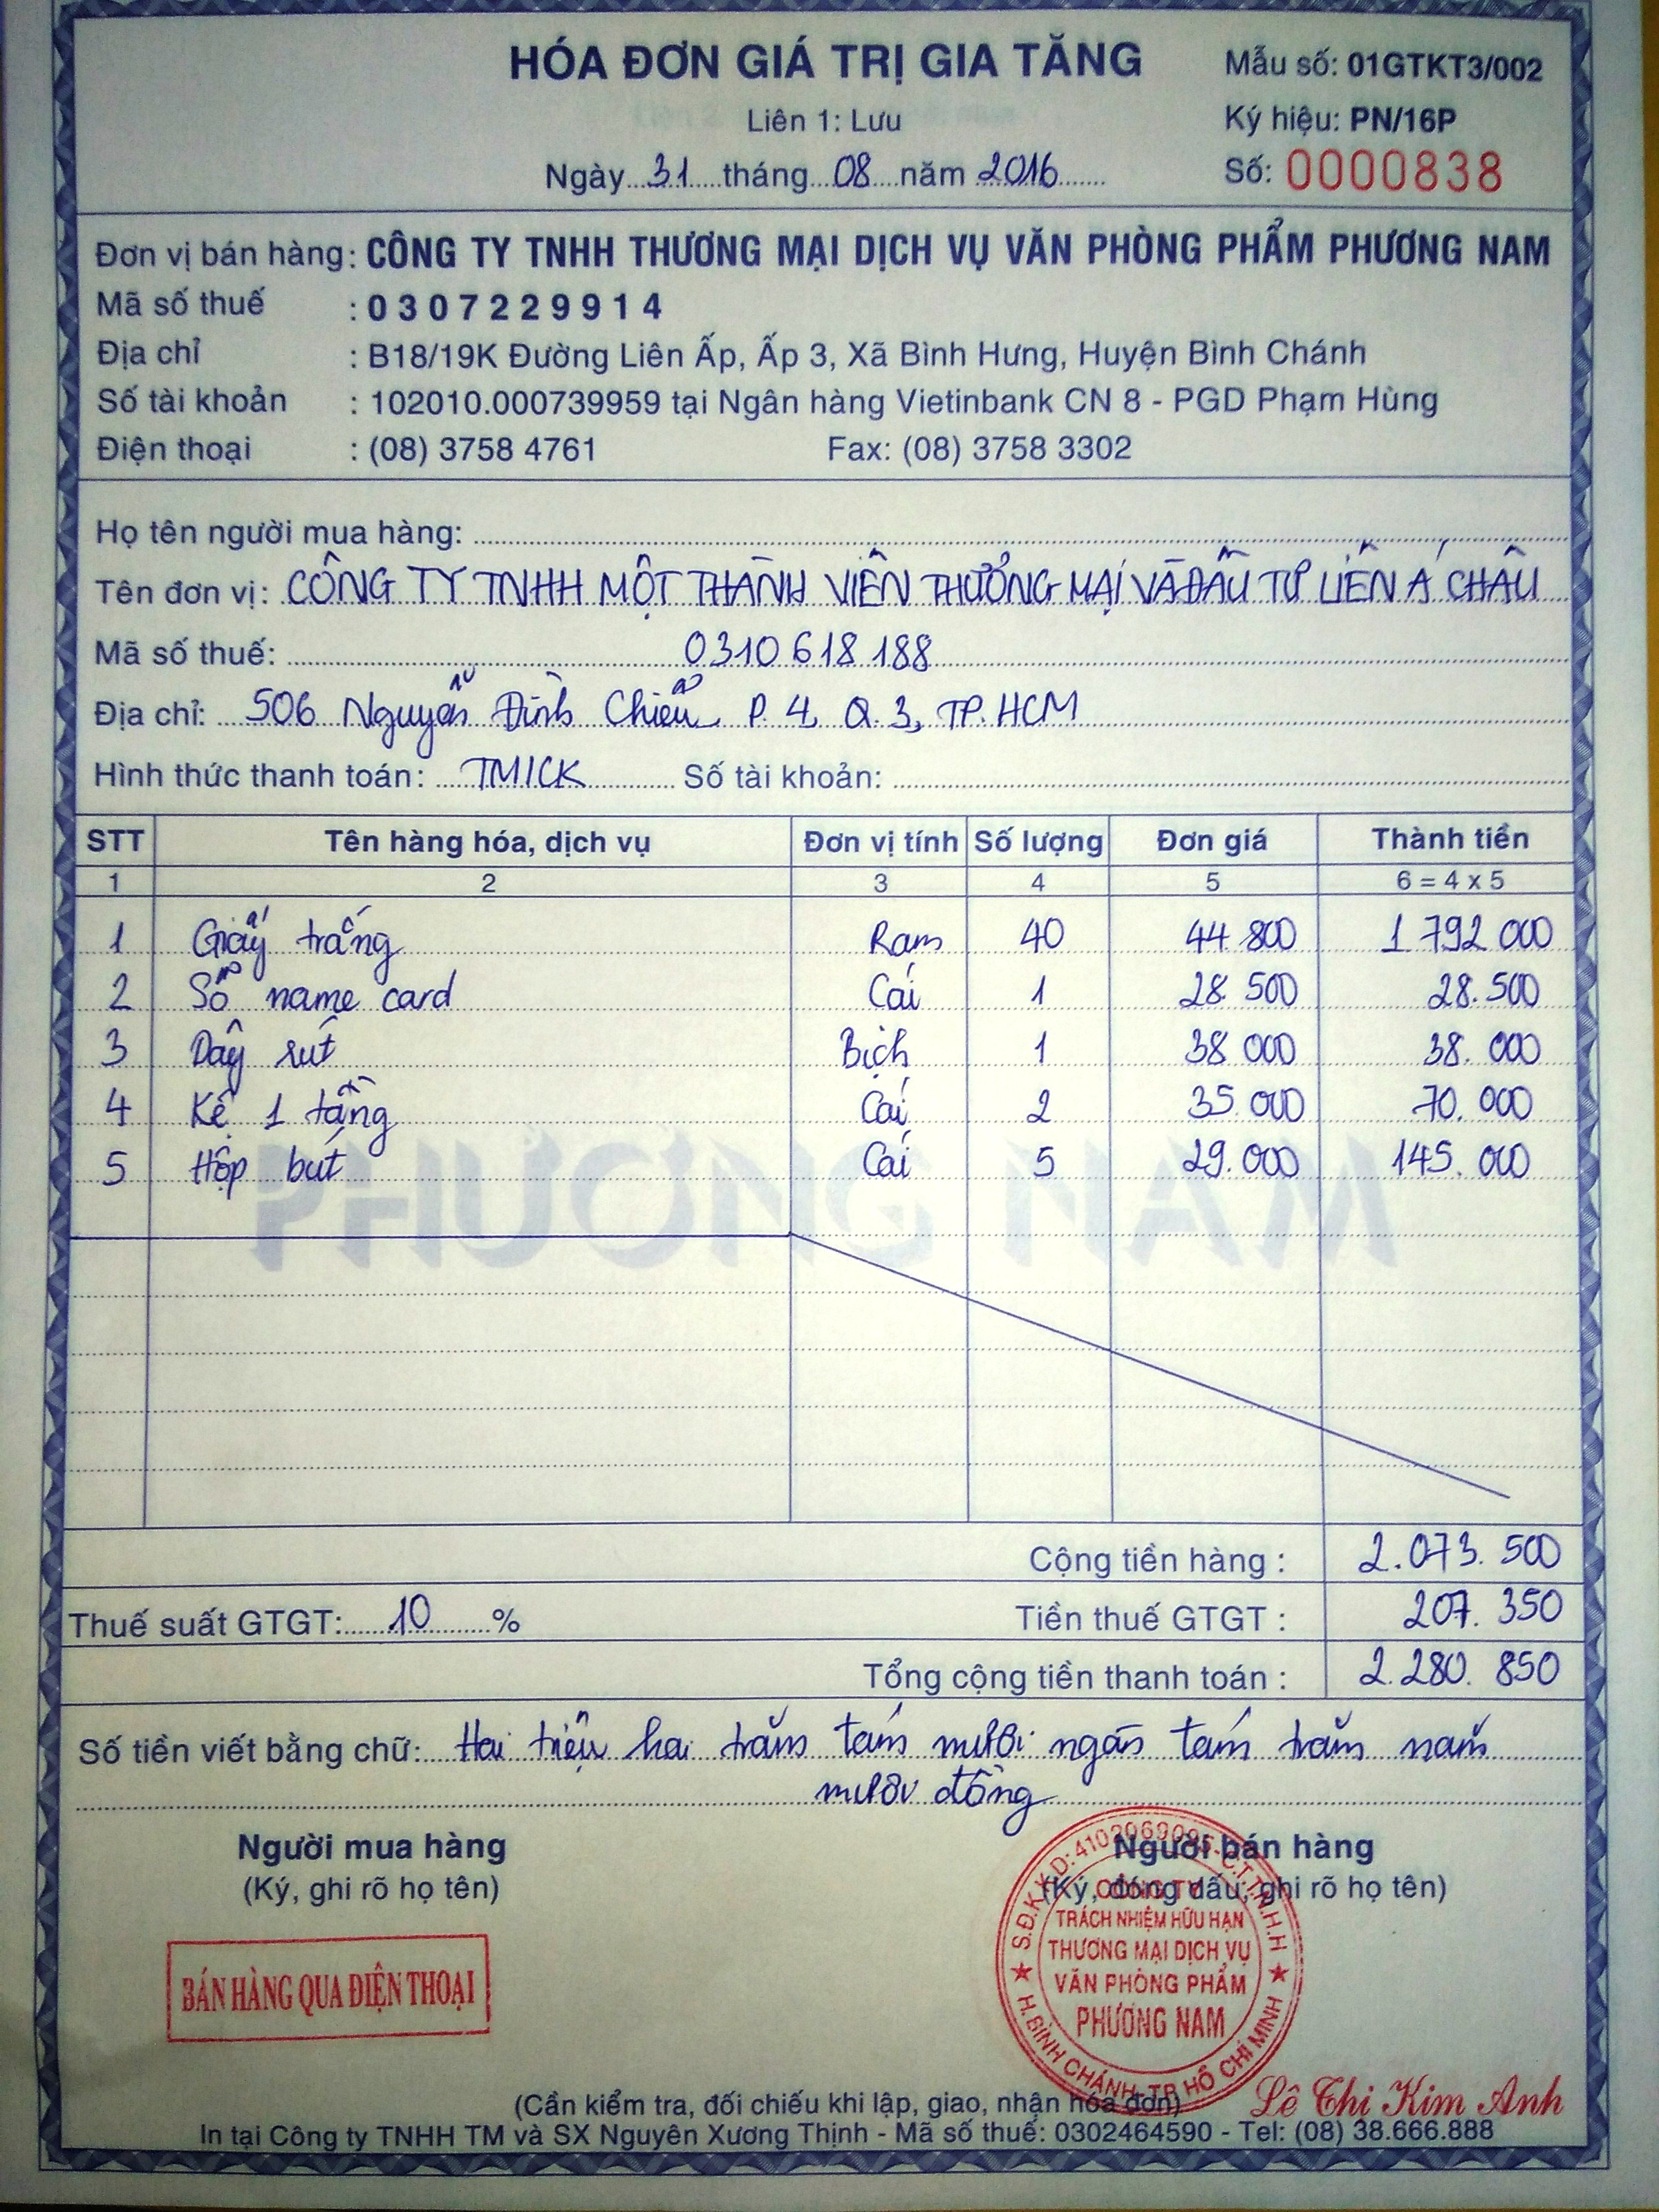 HÓA ĐƠN GIÁ TRỊ GIA TĂNG
Mẫu số: 01GTKT3/002
Liên 1: Lưu
Ký hiệu: PN/16P
Ngày 31 tháng 08 năm 2016
Số: 0000838
Đơn vị bán hàng: CÔNG TY TNHH THƯƠNG MẠI DỊCH VỤ VĂN PHÒNG PHẨM PHƯƠNG NAM
Mã số thuế : 0307229914
Địa chỉ : B18/19K Đường Liên Ấp, Ấp 3, Xã Bình Hưng, Huyện Bình Chánh
Số tài khoản : 102010.000739959 tại Ngân hàng Vietinbank CN 8 - PGD Phạm Hùng
Điện thoại : (08) 3758 4761 Fax: (08) 3758 3302
Họ tên người mua hàng:
Tên đơn vị: CÔNG TY TNHH MỘT THÀNH VIÊN THƯƠNG MẠI VÀ ĐẦU TƯ LIÊN Á CHÂU
Mã số thuế: 0310 618 188
Địa chỉ: 506 Nguyễn Đình Chiểu P. 4, Q. 3, TP. HCM
Hình thức thanh toán: TM/CK Số tài khoản:
STT Tên hàng hóa, dịch vụ Đơn vị tính Số lượng Đơn giá Thành tiền
1 2 3 4 5 6 = 4 x 5
1 Giấy trắng Ram 40 44.800 1 792 000
2 Sổ name card Cái 1 28.500 28.500
3 Dây rút Bịch 1 38 000 38. 000
4 Kệ 1 tầng Cái 2 35.000 70. 000
5 Hộp bút Cái 5 29.000 145. 000
PHƯƠNG NAM
Cộng tiền hàng : 2.073. 500
Thuế suất GTGT: 10 % Tiền thuế GTGT : 207. 350
Tổng cộng tiền thanh toán : 2.280. 850
Số tiền viết bằng chữ: Hai triệu hai trăm tám mươi ngàn tám trăm năm
mươi đồng
Người mua hàng
(Ký, ghi rõ họ tên)
Người bán hàng
(Ký, đóng dấu, ghi rõ họ tên)
BÁN HÀNG QUA ĐIỆN THOẠI
S.Đ.K.K.D: 4102069095-C.T.T.N.H.H
CÔNG TY
TRÁCH NHIỆM HỮU HẠN
THƯƠNG MẠI DỊCH VỤ
VĂN PHÒNG PHẨM
PHƯƠNG NAM
H.BÌNH CHÁNH-TP HỒ CHÍ MINH
Lê Thi Kim Anh
(Cần kiểm tra, đối chiếu khi lập, giao, nhận hóa đơn)
In tại Công ty TNHH TM và SX Nguyên Xương Thịnh - Mã số thuế: 0302464590 - Tel: (08) 38.666.888